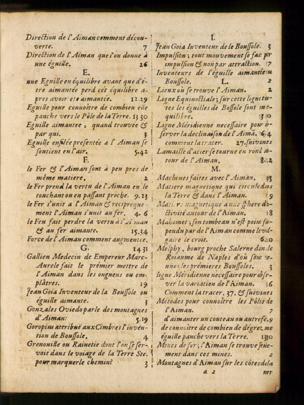 Direction de l'Aiman comment découverte. 7
Direction de l'Aiman que l'on donne à une éguille. 26
E.
une Eguille en équilibre avant que d'être aimantée perd cét équilibre apres avoir été aimantée. 12.29
Eguille pour connoître de combien elle panche vers le Pôle de la Terre. 1330
Eguille aimantée, quand trouvée & par qui. 1
Eguille enfilée presentée à l'Aiman se soutient en l'air. 5.42
F.
le Fer & l'Aiman sont à peu prés de même matiere.
le Fer prend la vertu de l'Aiman en le touchant ou en passant proche. 9.23
le Fer s'unit a l'Aiman & reciproquement l'Aiman s'unit au fer. 4.6
le Feu fait perdre la vertu à l'aiman & au fer aimanté. 15.34
Force de l'Aiman comment augmentée.
G. 14 31
Gallien Medecin de Empereur Marc-Aurele fait le premier mettre de l'Aiman dans les onguens ou emplâtres. 19
Jean Goia Inventeur de la Boussole ou éguille aimantée.
Gonzales Oviedo parle des montagnes d'Aiman. 5.19
Goropius attribue aux Cimbres l'invention de Boussole. 4
Grenouille ou Rainette dont l'on se servoit dans le voiage de la Terre Ste. pour marquer le chemin 5
I.
Jean Goia Inventeur de la Boussole. 3
Impulsion, tout mouvement se fait par impulsion & non par attraction. 17
Inventeurs de l'éguille aimantée ou Boussole. 2
L.
Lieux où se trouve l'Aiman. 2
Ligne Equinoctiale; sur cette ligne toutes les éguilles de Boussole sont immobiles.
Ligne Méridienne necessaire pour observer la declinaison de l'Aimā. 6 4
comment la tracer. 27. suivantes
Limaille d'acier se tourne en voulte d'Aiman. 8.22
M.
Machines faites avec l'Aiman. 35
Matiere magnetique qui circule dans la Terre & dans l'Aiman. 9
Matiere magnetique autre chose
autour de l'Aiman. 18
Mahomet; son tombeau n'est point suspendu par de l'Aiman comme le vulgaire le croit. 6.20
Melphy, bourg proche Salerne dans le Royaume de Naples d'où sont venues les premieres Boussoles. 3
ligne Méridienne necessaire pour observer la variation de l'Aiman. 16
Comment la tracer. 37. & suivantes
Métodes pour connoître les Pôles de l'Aiman. 7
d'aimanter un couteau ou autre fer. 9
de connoître de combien de dégrez, une éguille panche vers la Terre. 1380
Mines de fer, l'Aiman se trouve seulement dans ces mines. 2
Montagnes d'Aiman sur les côtes de la
a 2 mer